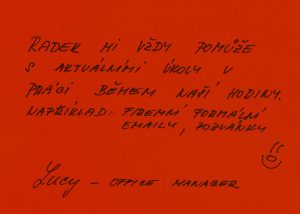 RADEK MI VŽDY POMŮŽE
S AKTUÁLNÍMI ÚKOLY V
PRÁCI BĚHEM NAŠÍ HODINY.
NAPŘÍKLAD: FIREMNÍ FORMÁLNÍ
EMAILY, POZVÁNKY
LUCY – OFFICE MANAGER